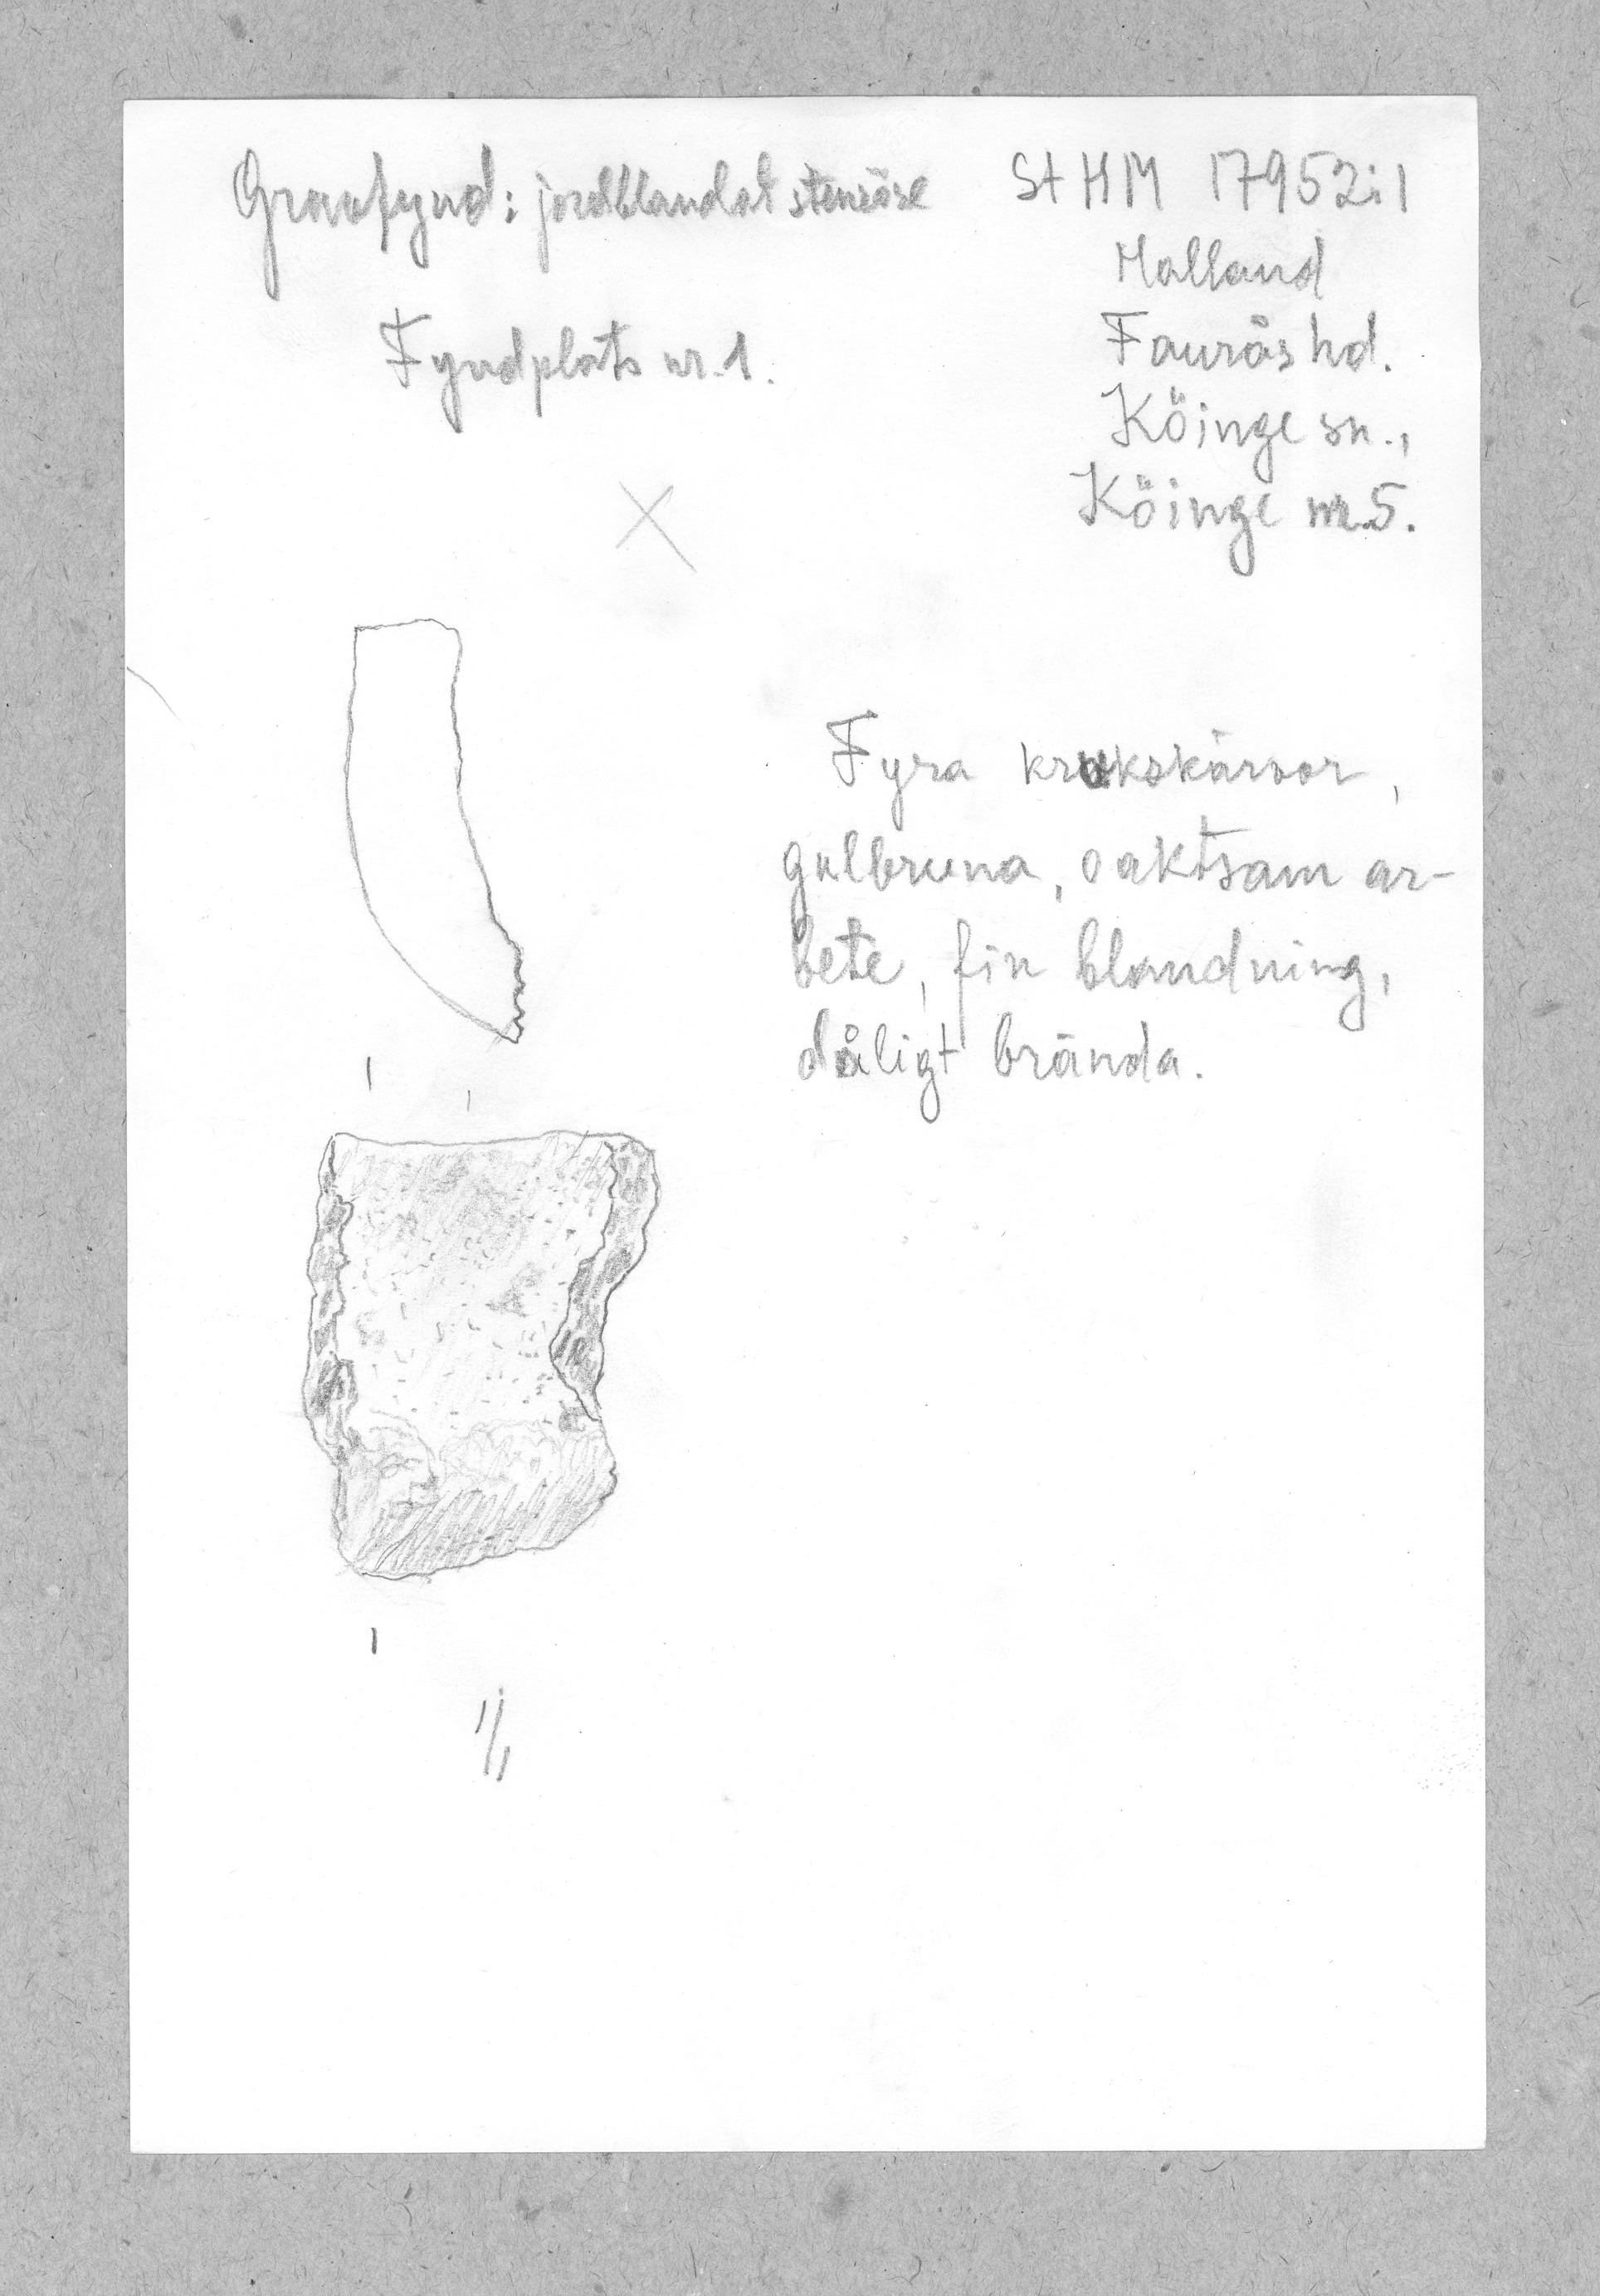 Gravfynd: jordblandat stenröse
Fyndplats nr. 1.
St H M 17952:1
Halland
Faurås hd.
Köinge sn.,
Köinge nr. 5.
Fyra krukskärvor,
gulbruna, oaktsam ar-
bete, fin blandning,
dåligt brända.
1/1